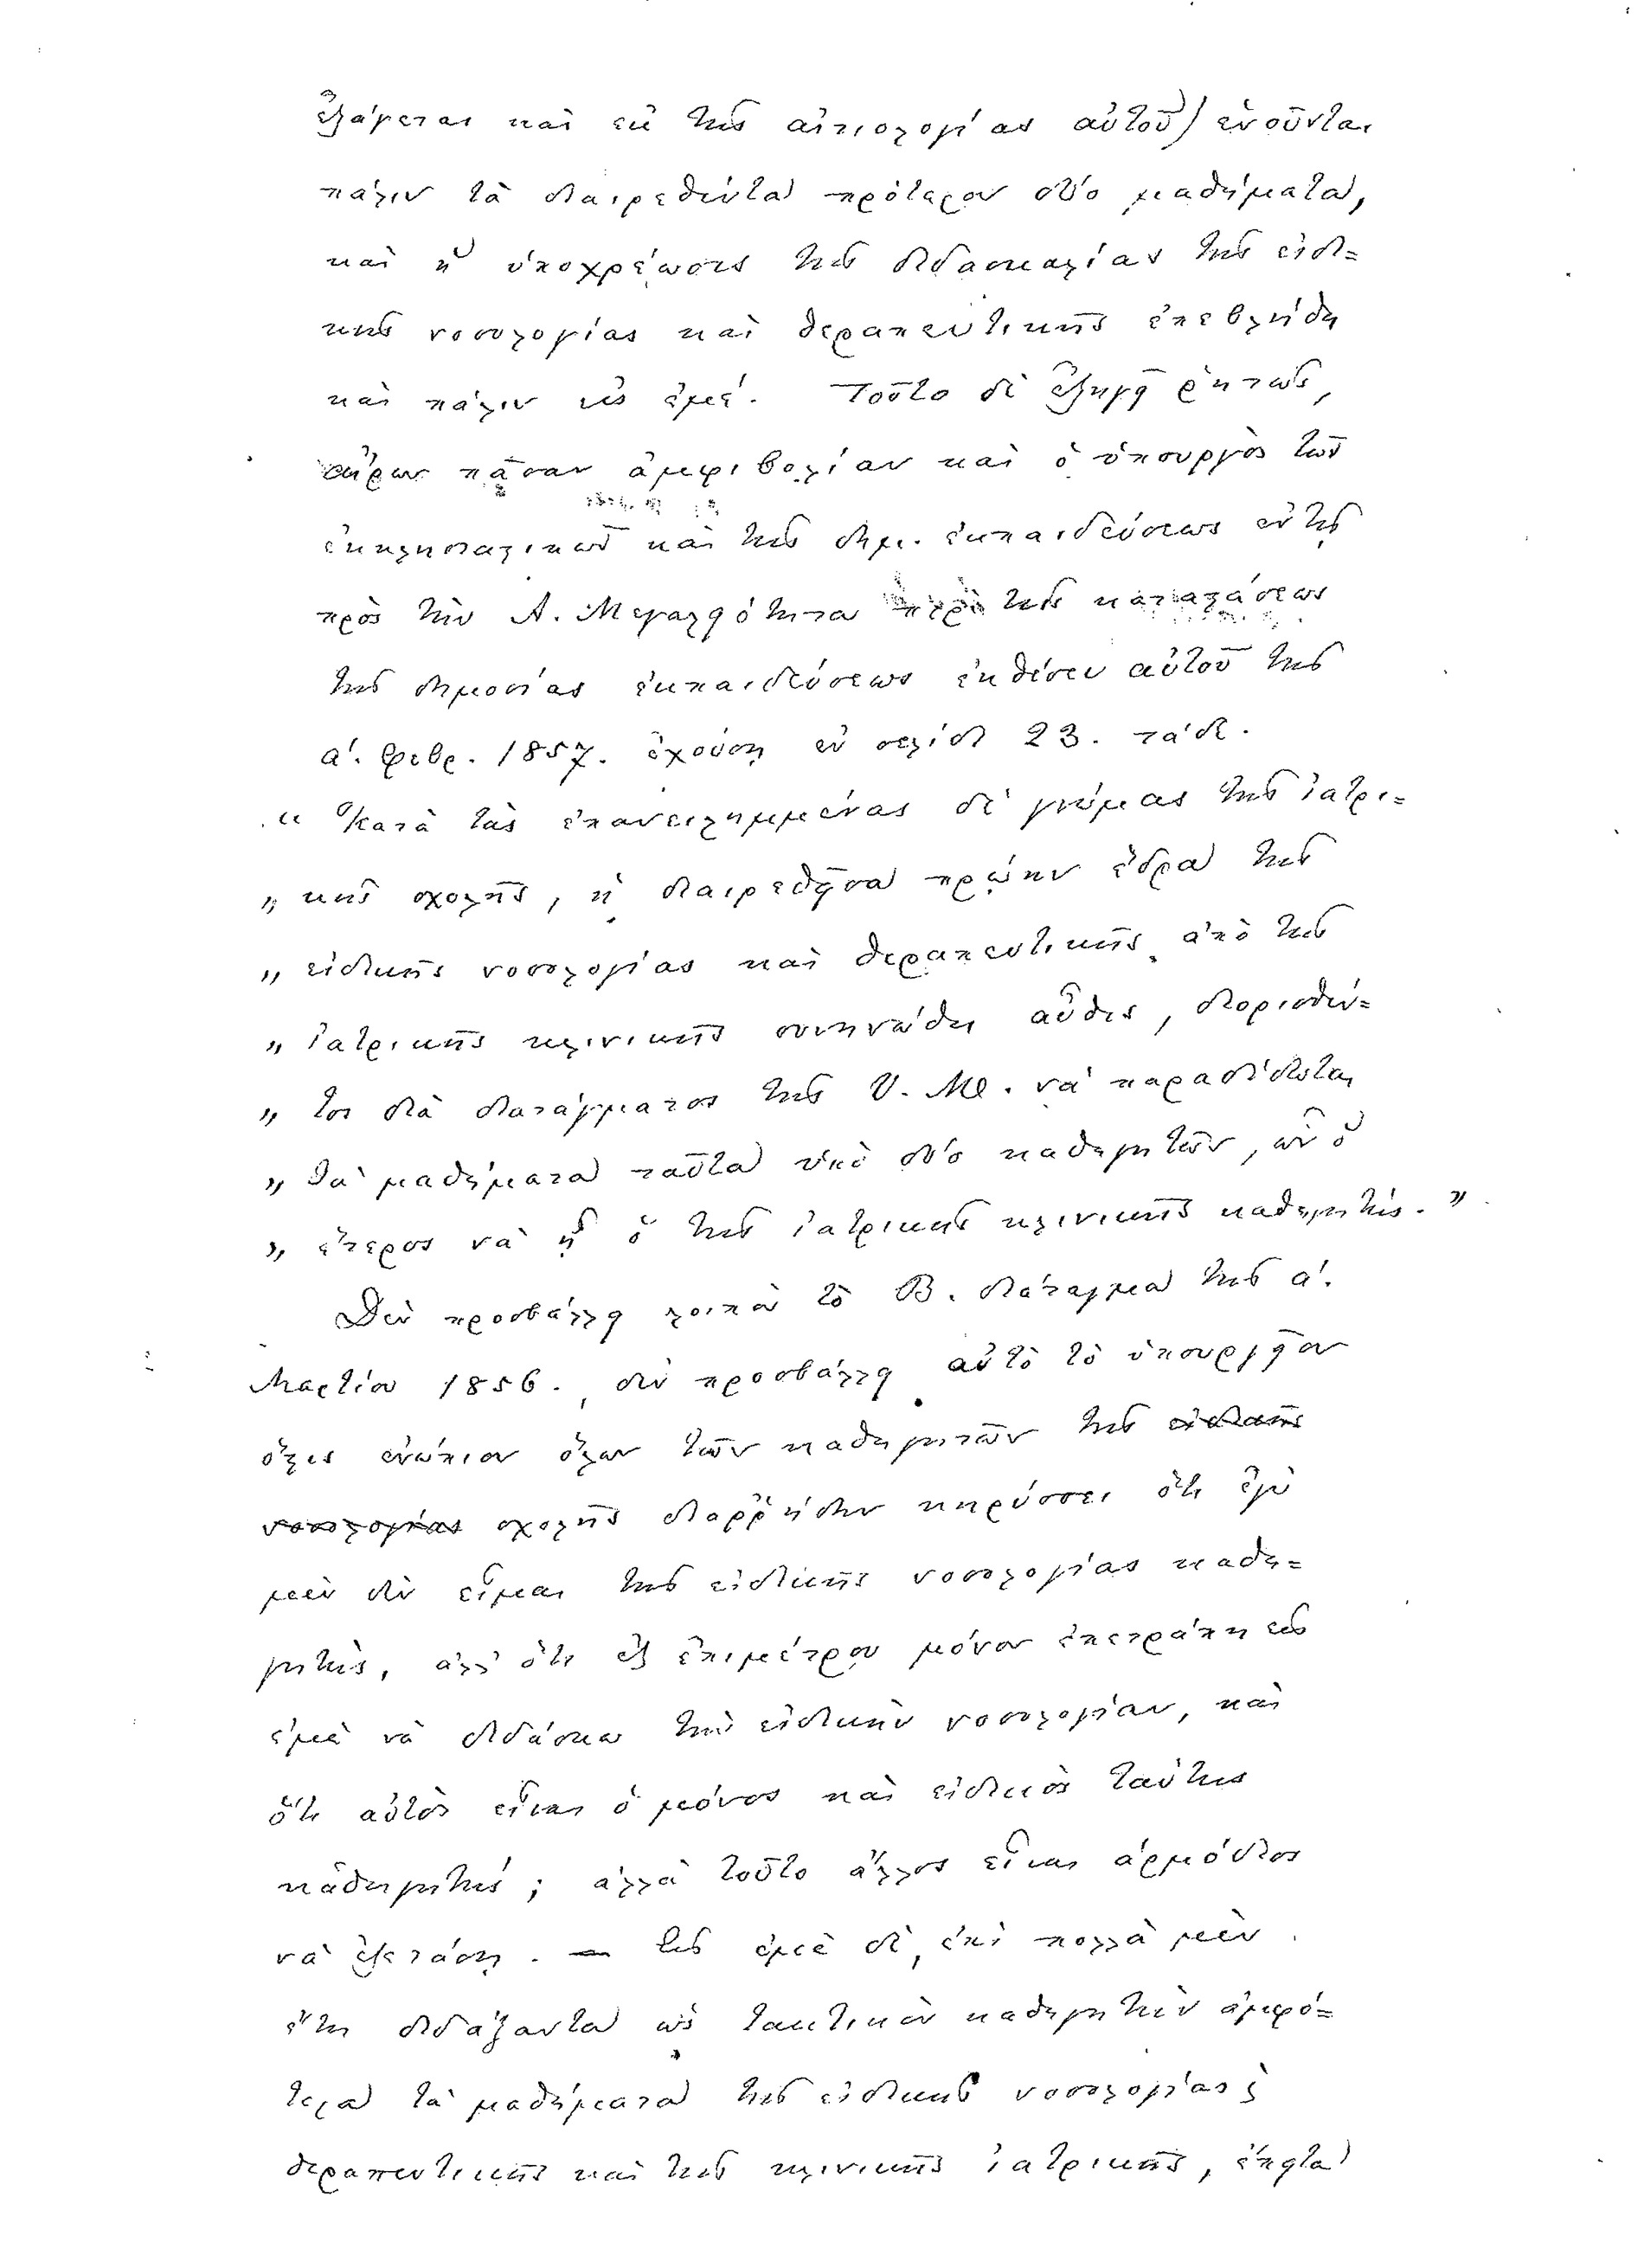 ἐξάγεται καὶ ἐκ τῆς αἰτιολογίας αὐτοῦ) ἑνοῦνται
πάλιν τὰ διαιρεθέντα πρότερον δύο μαθήματα,
καὶ ἡ ὑποχρέωσις τῆς διδασκαλίας τῆς εἰδι=
κῆς νοσολογίας καὶ θεραπευτικῆς ἐπεβλήθη
καὶ πάλιν εἰς ἐμέ. Τοῦτο δὲ ἐξηγεῖ ῥητῶς,
αἴρων πᾶσαν ἀμφιβολίαν καὶ ὁ ὑπουργὸς τῶν
ἐκκλησιαστικῶν καὶ τῆς δημ. ἐκπαιδεύσεως ἐν τῇ
πρὸς τὴν Α. Μεγαλειότητα περὶ τῆς καταστάσεως
τῆς δημοσίας ἐκπαιδεύσεως ἐκθέσει αὐτοῦ τῆς
α΄. φεβρ. 1857. ἐχούσῃ ἐν σελίδι 23. τάδε.
" Κατὰ τὰς ἐπανειλημμένας δὲ γνώμας τῆς ἰατρι=
" κῆς σχολῆς, ἡ διαιρεθεῖσα πρώην ἕδρα τῆς
" εἰδικῆς νοσολογίας καὶ θεραπευτικῆς ἀπὸ τῆς
" ἰατρικῆς κλινικῆς συνηνώθη αὖθις, διορισθέν=
" τος διὰ διατάγματος τῆς Υ. Μ. νὰ παραδίδωται
" τὰ μαθήματα ταῦτα ὑπὸ δύο καθηγητῶν, ὧν ὁ
" ἕτερος νὰ ᾖ ὁ τῆς ἰατρικῆς κλινικῆς καθηγητής. "
Δὲν προσβάλλει λοιπὸν τὸ Β. διάταγμα τῆς α΄.
Μαρτίου 1856., δὲν προσβάλλει αὐτὸ τὸ ὑπουργεῖον
ὅστις ἐνώπιον ὅλων τῶν καθηγητῶν τῆς εἰδικῆς
νοσολογίας σχολῆς διαῤῥήδην κηρύσσει ὅτι ἐγὼ
μὲν δὲν εἶμαι τῆς εἰδικῆς νοσολογίας καθη=
γητὴς, ἀλλ' ὅτι ἐξ ἐπιμέτρου μόνον ἐπετράπη εἰς
ἐμὲ νὰ διδάσκω τὴν εἰδικὴν νοσολογίαν, καὶ
ὅτι αὐτὸς εἶναι ὁ μόνος καὶ εἰδικὸς ταύτης
καθηγητής; ἀλλὰ τοῦτο ἄλλος εἶναι ἁρμόδιος
νὰ ἐξετάσῃ. — Εἰς ἐμὲ δὲ, ἐπὶ πολλὰ μὲν
ἔτη διδάξαντα ὡς τακτικὸν καθηγητὴν ἀμφό=
τερα τὰ μαθήματα τῆς εἰδικῆς νοσολογίας καὶ
θεραπευτικῆς καὶ τῆς κλινικῆς ἰατρικῆς, ἔπειτα